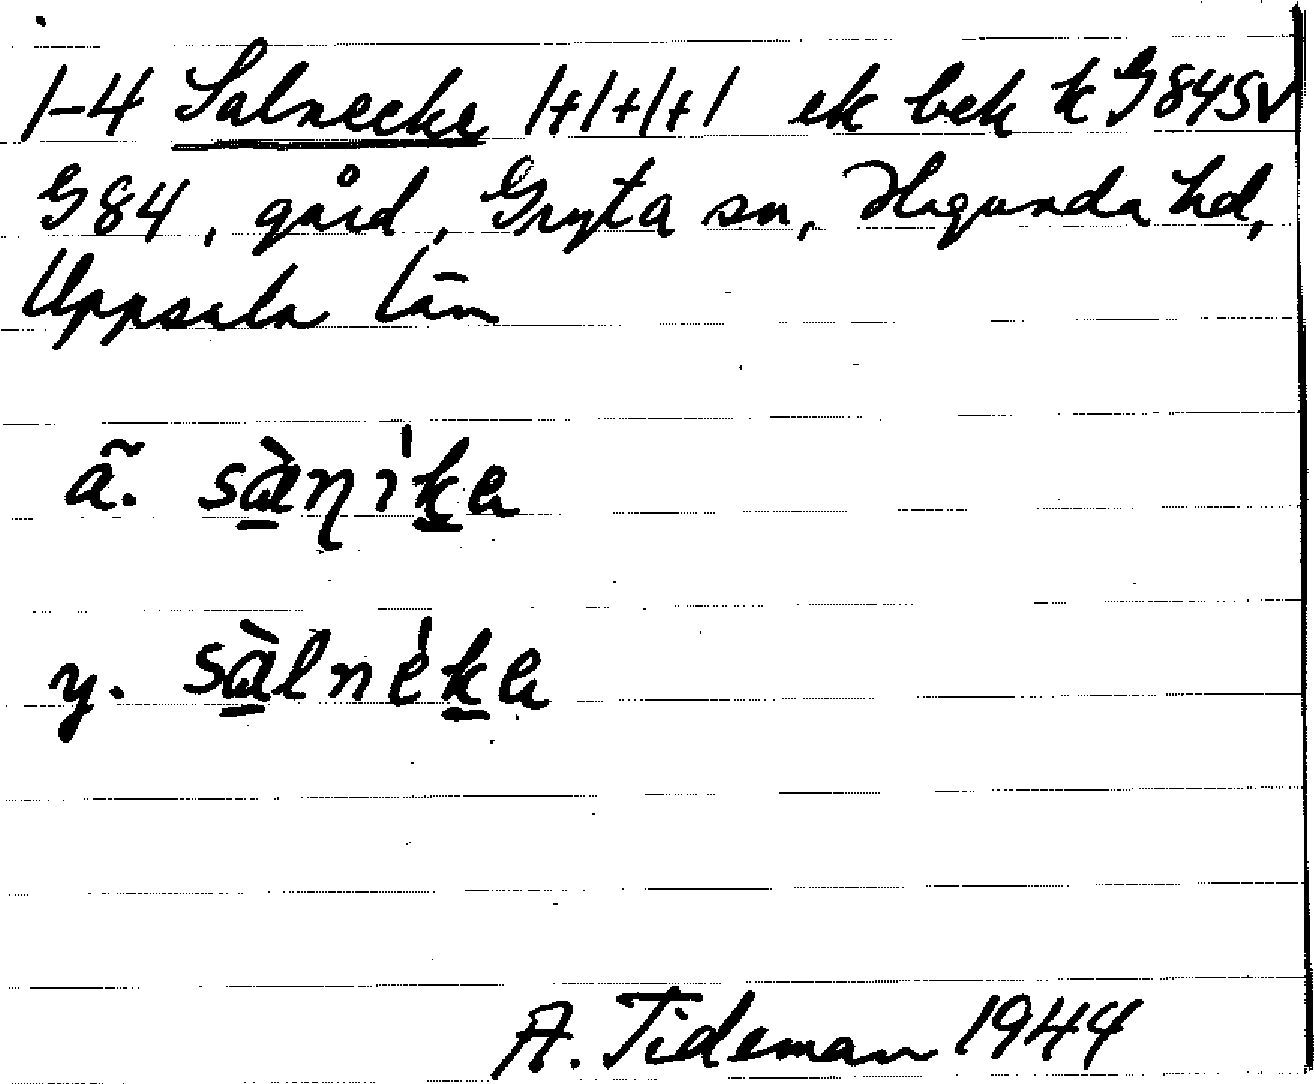 1-4 Salnecke 1+1+1+1 ek bek k G84SV
G84, gård, Gryta sn, Hagunda hd,
Uppsala län
ã. sàṇika
y. sàlnèka
A. Tideman 1944